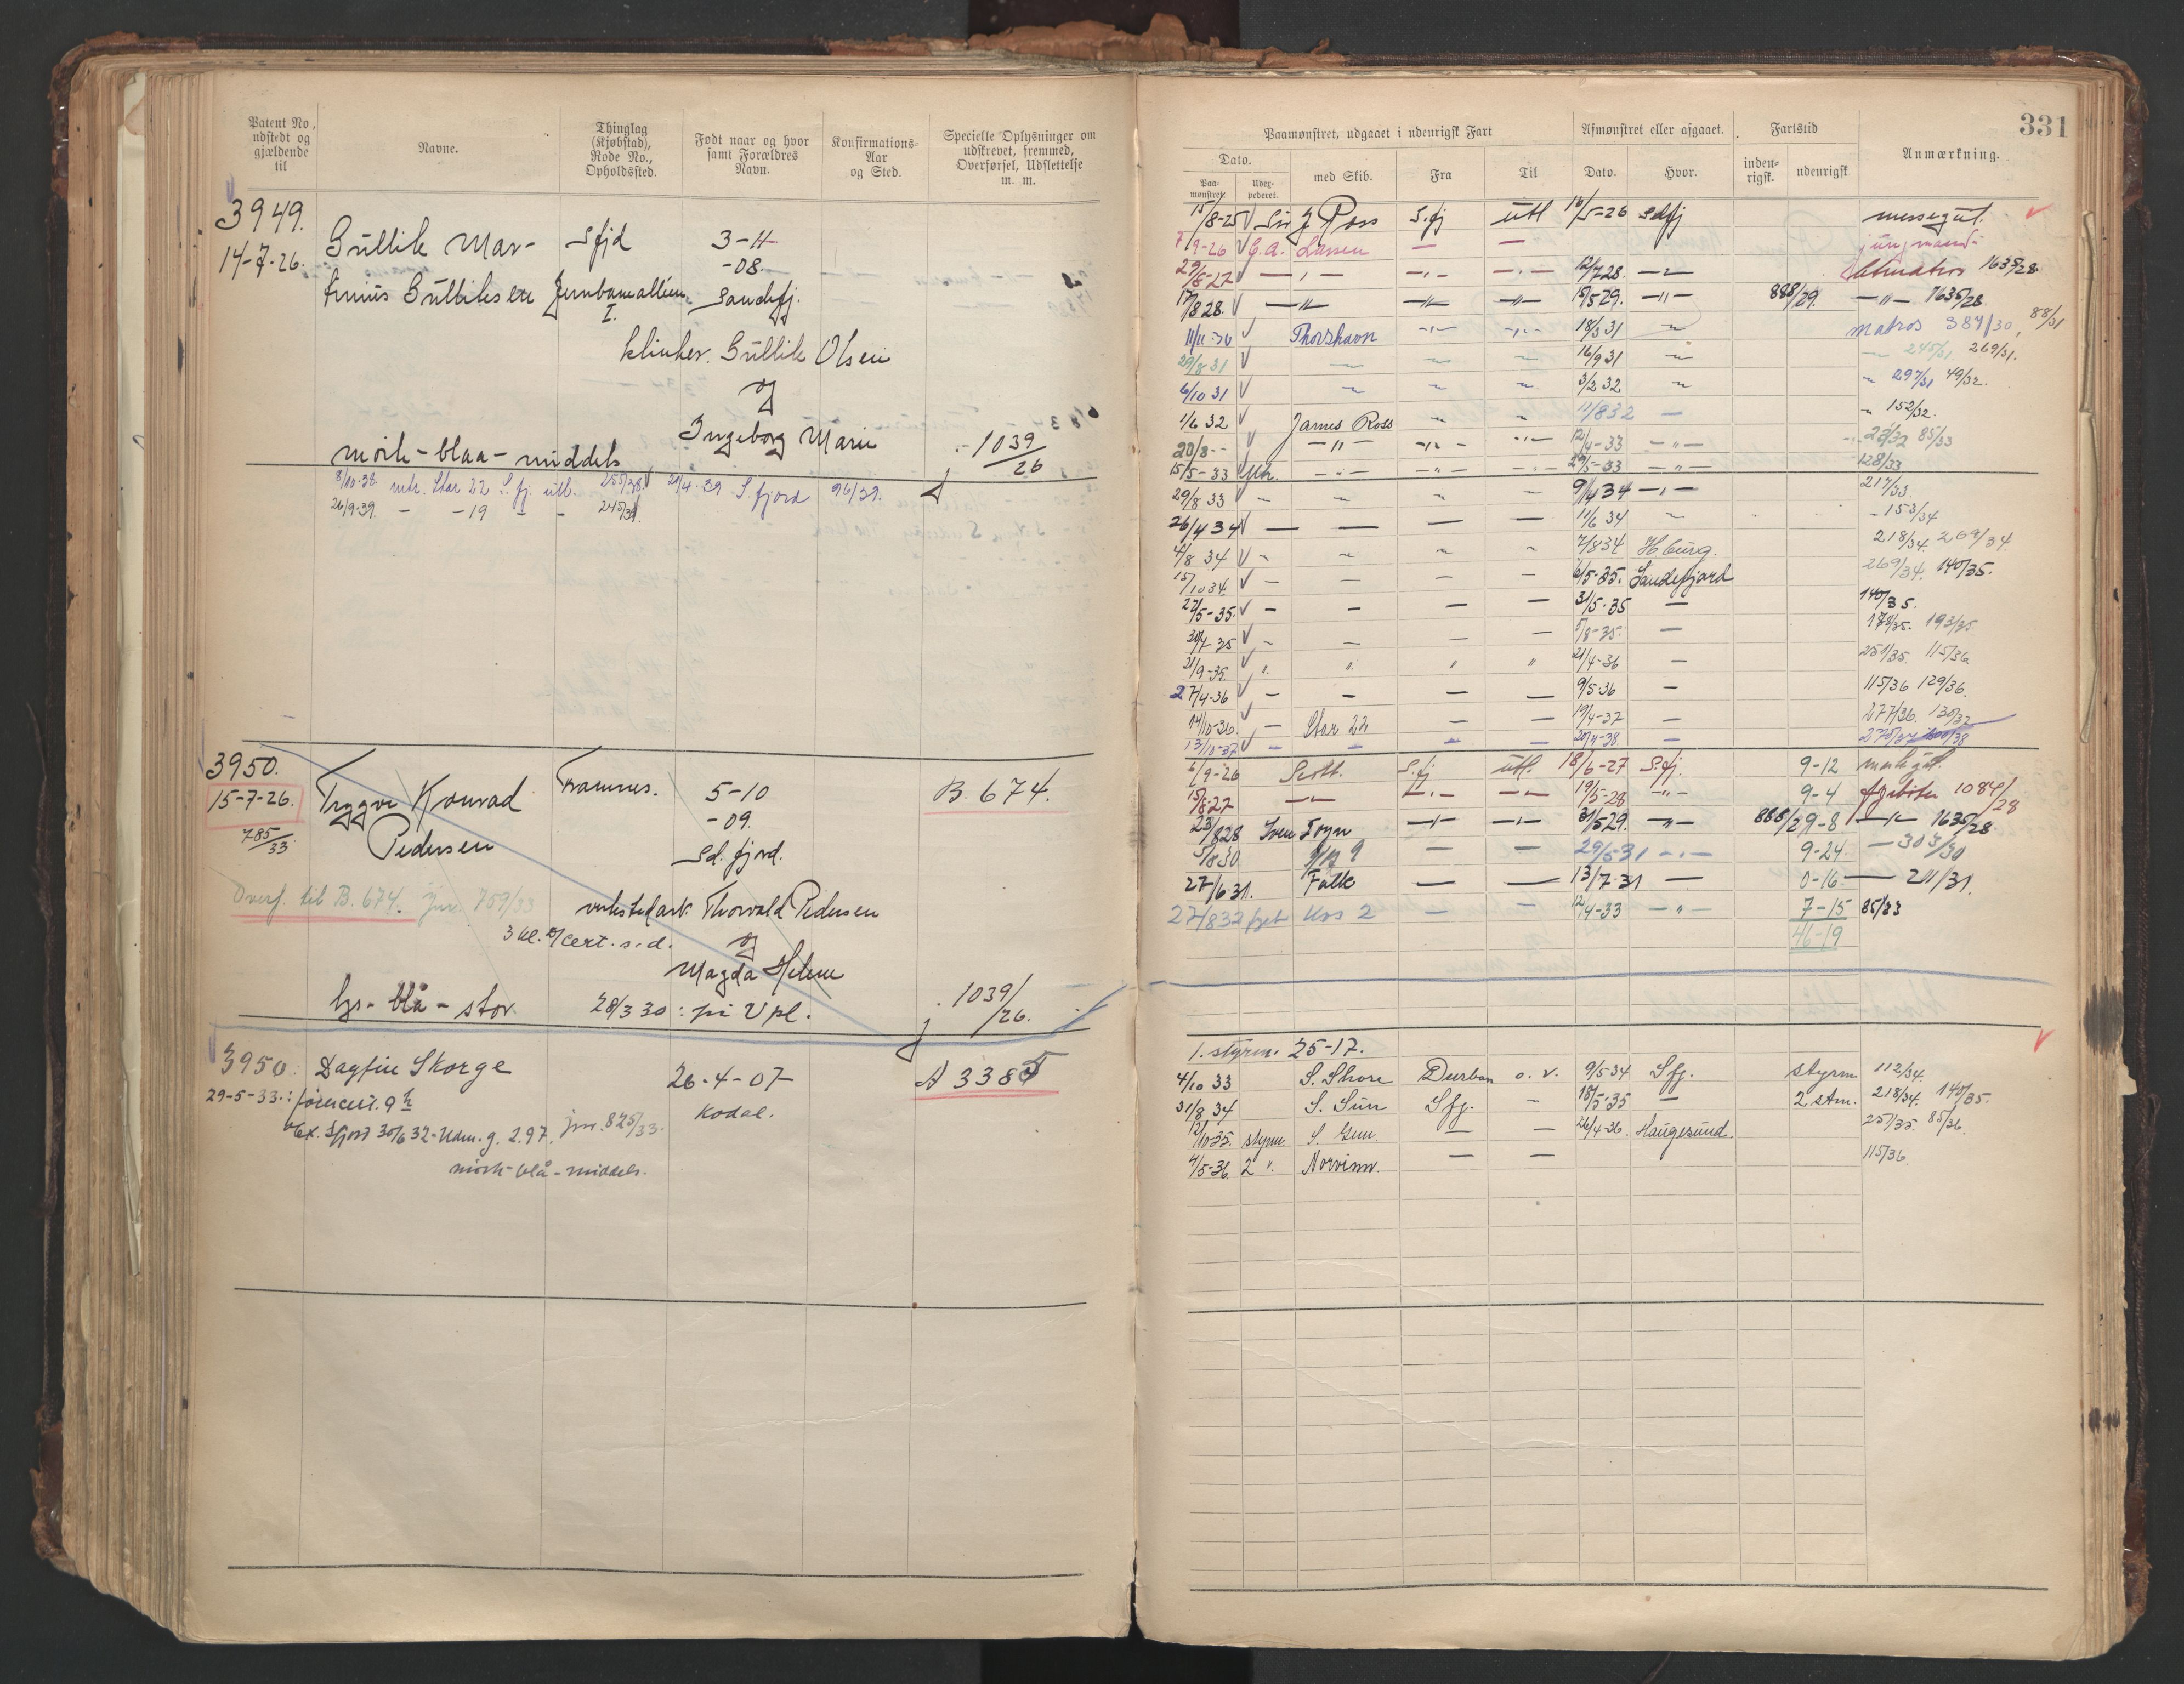 Patent No., udstedt og gjældende til
Navne.
Thinglag (Kjøbstad), Rode No., Opholdssted.
Født naar og hvor samt Forældres Navn.
Konfirmations-Aar og Sted.
Specielle Oplysninger om udskrevet, fremmed, Overførsel, Udslettelse m. m.
3949.
14-7-26.
Güllik Mar-
Sfjd
3-11
-08.
Gülliksen Jernbanealleen
I.
Sandefj.
klinker. Güllik Olsen
og
Ingeborg Marie
mörk-blaa-middels
1039/26
8/10-38 mtr. Star 22 S.fj. utl. 255/38. 21/4-39 S.fjord 96/39.
26/9-39. - -19 - - 245/39.
3950.
15-7-26.
785/33
Trygve Konrad
Pedersen
Framnes.
5-10
-09.
Sd.fjord.
B. 674.
Overf. til B. 674. jnr. 759/33
verkstedarb. Thorvald Pedersen
og
3 kl. cert. s.d.
Magda Helene
lys-blå-stor
28/3 30: på V pl.
1039/26.
3950. Dagfin Skorge
26-4-07
A 3385
29-5-33.
Kodal.
jnr. 825/33.
Ex. Sfjord 30/6 32-Udm. g. 2.97.
mörk-blå-middels.
331
Paamønstret, udgaaet i udenrigsk Fart
Afmønstret eller afgaaet.
Fartstid
Anmærkning.
Dato.
Paa-mønstret.
Udex-pederet.
med Skib.
Fra
Til
Dato.
Hvor.
inden-rigsk.
udenrigsk
15/8-25 Sir J Ross S.fj utl 16/5-26 Sdfj messegut.
7/9-26 C.A. Larsen — — jungmand
29/8-27 — " — — " — — " — 12/7 28. — " — Letmatros 1635/28
17/8 28. — " — — " — — " — 15/5 29. — " — 888/29. — " — 1635/28
11/11-30 Thorshavn — " — — " — 18/3 31 — " — matros 384/30, 88/31
29/8 31 — — — 16/9 31 — 245/31 269/31.
6/10 31 — — — 3/2 32 — 297/31 49/32.
1/6 32 James Ross — — 11/8 32 — 152/32.
20/8 - - — " — — " — — " — 12/4-33 — " — 85/33
15/5-33 Mtr. — " — — " — — " — 29/5-33 — " — 128/33
29/8 33 — — — — 9/4 34 — " — 217/33.
26/4 34 — — — — 11/6 34 — 153/34
4/8 34 — — — — 7/8 34 Hburg. 218/34. 269/34.
15/10 34 — — — — 6/5-35. Sandefjord 269/34. 140/35.
22/5-35. — — — — 31/5-35 — 140/35.
30/7-35 — — — — 5/8-35. — 178/35. 193/35
21/9-35. " " " " 21/4-36 — 251/35. 115/36.
27/4-36 — — — — 9/5-36 — 115/36 129/36.
14/10-36 — Star 22 — — 19/4-37 — 277/36. 130/37
13/10-37 — — — — 20/4-38. —
6/9-26 Scott. S.fj utl. 18/6-27 S.fj. 9-12
15/8-27 — " — — " — — " — 19/5-28 — " — 9-4 fyrböter 1084/28
23/8 28 Sven Foyn — " — — " — 31/5 29. — " — 888/29-8 — " — 1635/28
5/8 30 — — 29/5-31 — " — 9-24 — 303/30
27/6 31. Falk — — 13/7-31 — 0-16 — 211/31.
27/8 32 fyrb Kos 2 — — 12/4-33 — " — 7-15 85/33
46-19
1. styrm. 25-17.
4/10 33 S. Shore Durban o. v. 9/5-34 Sfj. styrm 112/34.
31/8 34 S. Sun Sfj. — 18/5-35 — 2 stm. 218/34. 140/35.
12/10-35. styrm. S. Gun — — 26/4-36. Haugesund. 257/35. 85/36.
4/5-36 2 ". Norvinn. — — 115/36